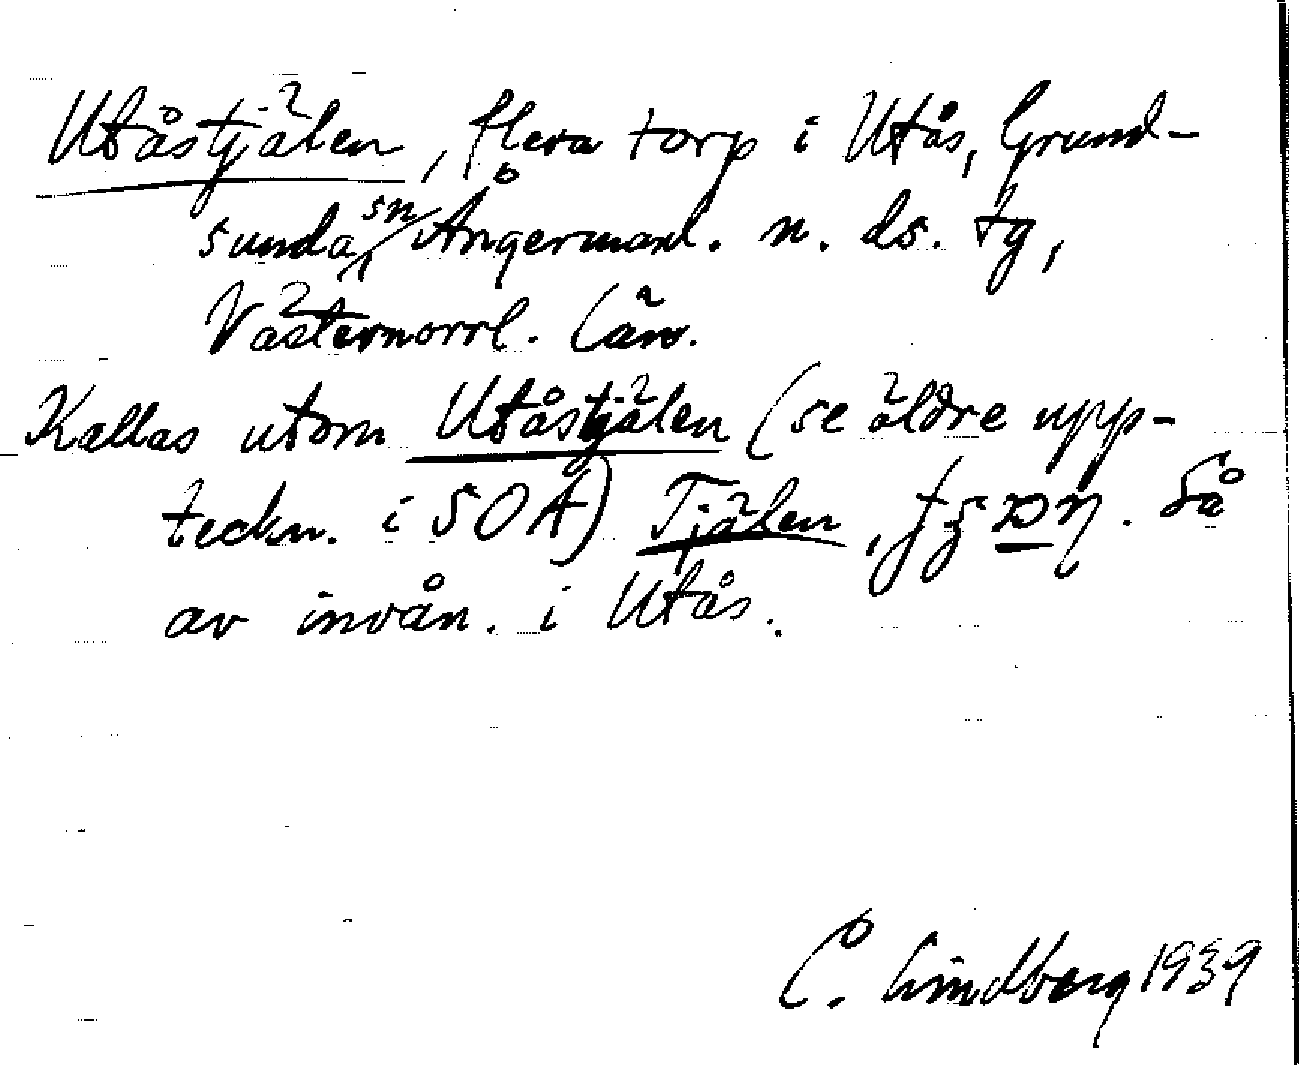 Utåstjälen, flera torp i Utås, Grund-
sunda sn Ångermanl. n. ds. tg,
Västernorrl. län.
Kallas utom Utåstjälen (se äldre upp-
teckn. i SOÅ) Tjälen, . Så
av invån. i Utås.
C. Lindberg 1939